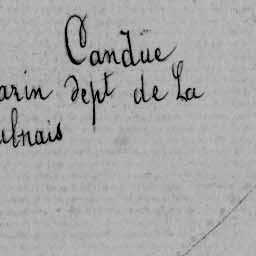 Candüe
arin dept de La
ubnais